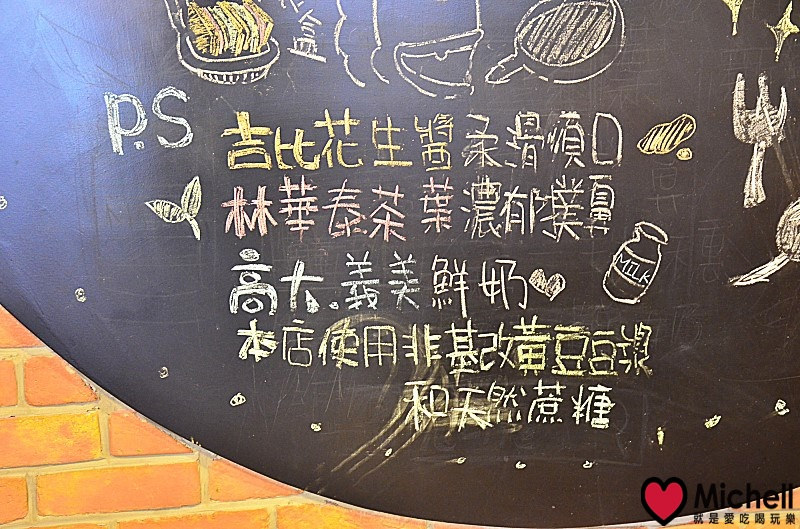 盒
P.S
吉比花生醬柔滑順口
林華泰茶葉濃郁撲鼻
高大.義美鮮奶
MILK
本店使用非基改黃豆豆漿
和天然蔗糖
Michell
就是愛吃喝玩樂